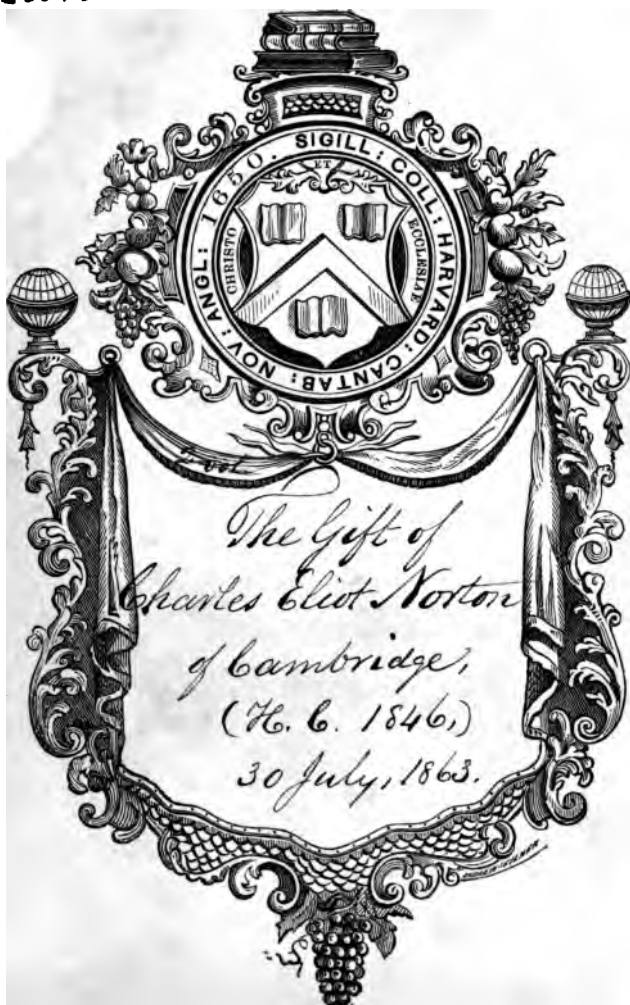 SIGILL: COLL: HARVARD: CANTAB: NOV: ANGL: 1650.
ET
CHRISTO
ECCLESIAE
vol.
The Gift of
Charles Eliot Norton
of Cambridge,
(H. C. 1846,)
30 July, 1863.